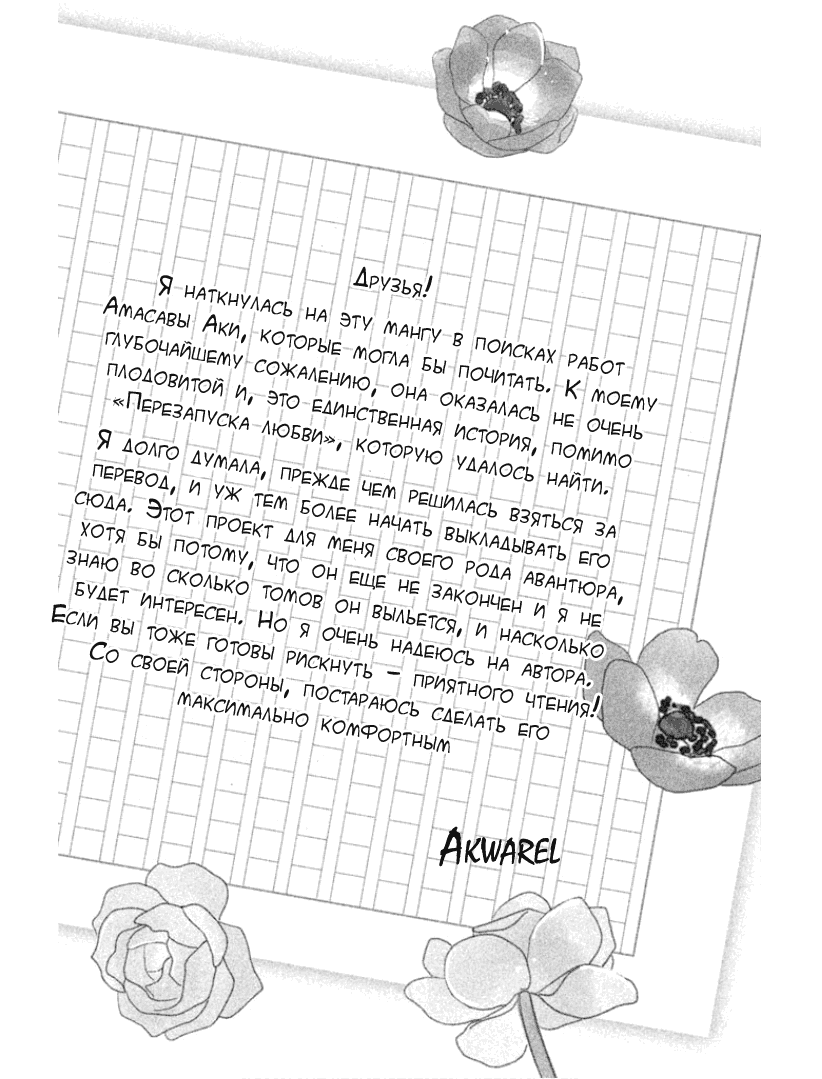 Друзья!
Я наткнулась на эту мангу в поисках работ
Амасавы Аки, которые могла бы почитать. К моему
глубочайшему сожалению, она оказалась не очень
плодовитой и, это единственная история, помимо
«Перезапуска любви», которую удалось найти.
Я долго думала, прежде чем решилась взяться за
перевод, и уж тем более начать выкладывать его
сюда. Этот проект для меня своего рода авантюра,
хотя бы потому, что он еще не закончен и я не
знаю во сколько томов он выльется, и насколько
будет интересен. Но я очень надеюсь на автора.
Если вы тоже готовы рискнуть – приятного чтения!
Со своей стороны, постараюсь сделать его
максимально комфортным
Akwarel